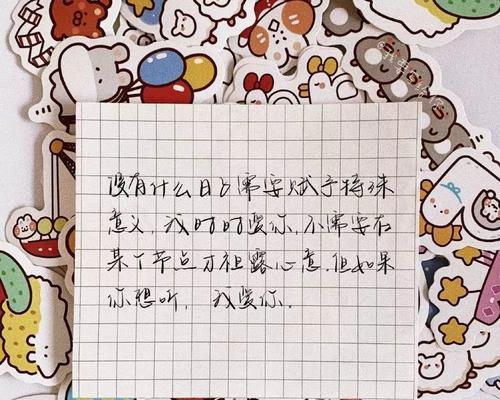 没有什么日占需要赋予特殊
意义，我时时爱你，不需要在
某个节点才袒露心意.但如果
你想听，我爱你.